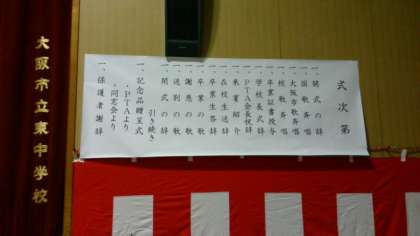 式次第
一、開式の辞
一、国歌斉唱
一、大阪市歌斉唱
一、校歌斉唱
一、卒業証書授与
一、学校長式辞
一、PTA会長祝辞
一、来賓紹介
一、在校生送辞
一、卒業生答辞
一、卒業の歌
一、謝恩の歌
一、送別の歌
一、閉式の辞
引き続き
一、記念品贈呈式
・PTAより
・同窓会より
一、保護者謝辞
大阪市立東中学校